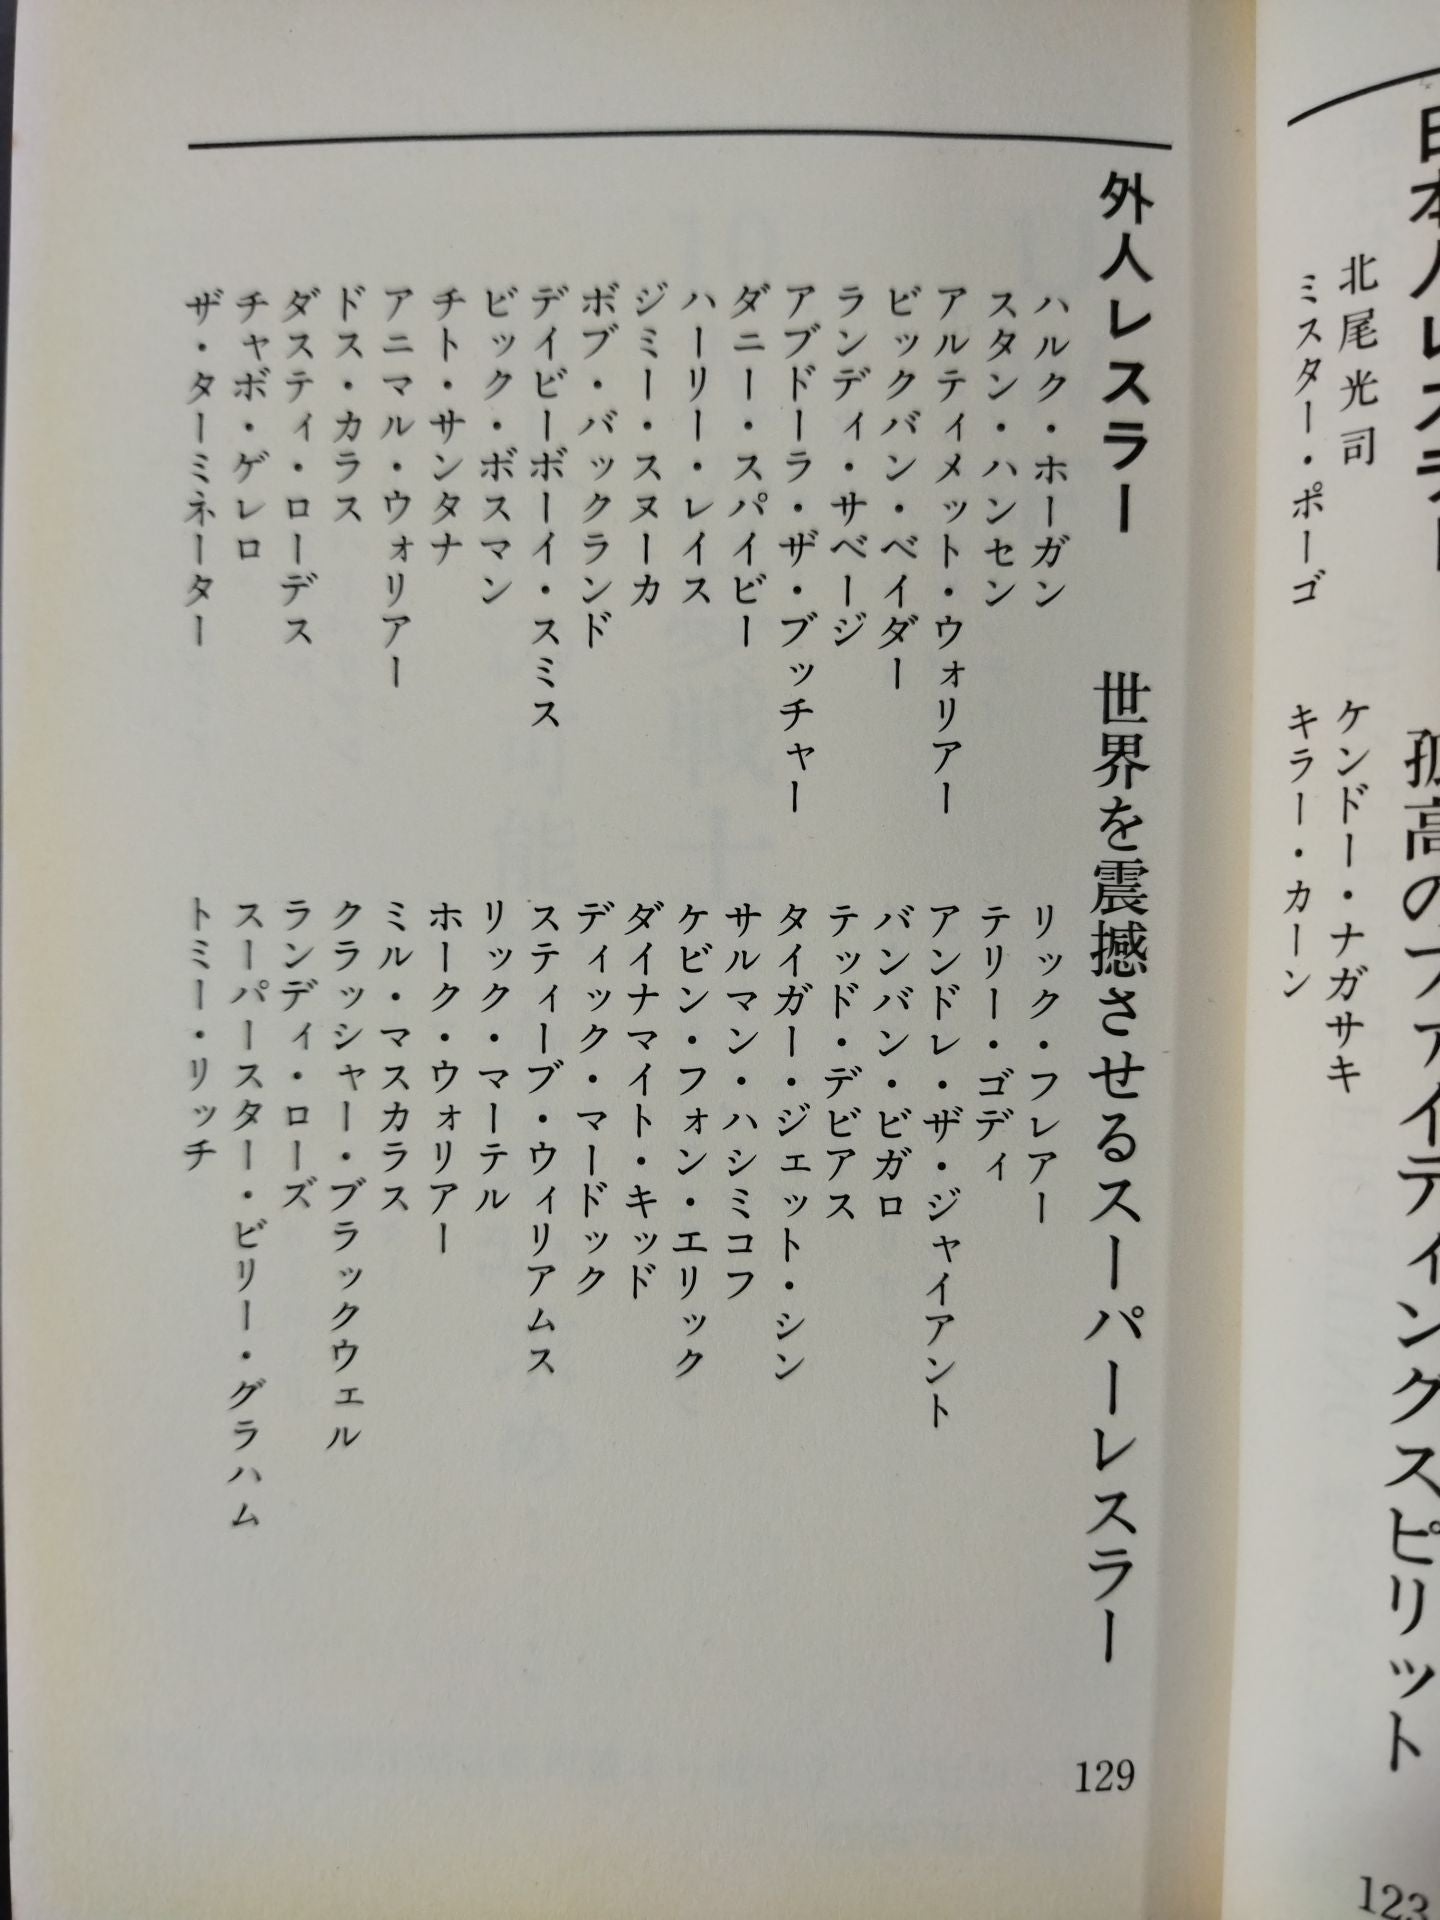 日本人レスラー 孤高のファイティングスピリット
北尾光司
ミスター・ポーゴ
ケンドー・ナガサキ
キラー・カーン
123
外人レスラー 世界を震撼させるスーパーレスラー
129
ハルク・ホーガン
スタン・ハンセン
アルティメット・ウォリアー
ビックバン・ベイダー
ランディ・サベージ
アブドーラ・ザ・ブッチャー
ダニー・スパイビー
ハーリー・レイス
ジミー・スヌーカ
ボブ・バックランド
デイビーボーイ・スミス
ビック・ボスマン
チト・サンタナ
アニマル・ウォリアー
ドス・カラス
ダスティ・ローデス
チャボ・ゲレロ
ザ・ターミネーター
リック・フレアー
テリー・ゴディ
アンドレ・ザ・ジャイアント
バンバン・ビガロ
テッド・デビアス
タイガー・ジェット・シン
サルマン・ハシミコフ
ケビン・フォン・エリック
ダイナマイト・キッド
ディック・マードック
スティーブ・ウィリアムス
リック・マーテル
ホーク・ウォリアー
ミル・マスカラス
クラッシャー・ブラックウェル
ランディ・ローズ
スーパースター・ビリー・グラハム
トミー・リッチ